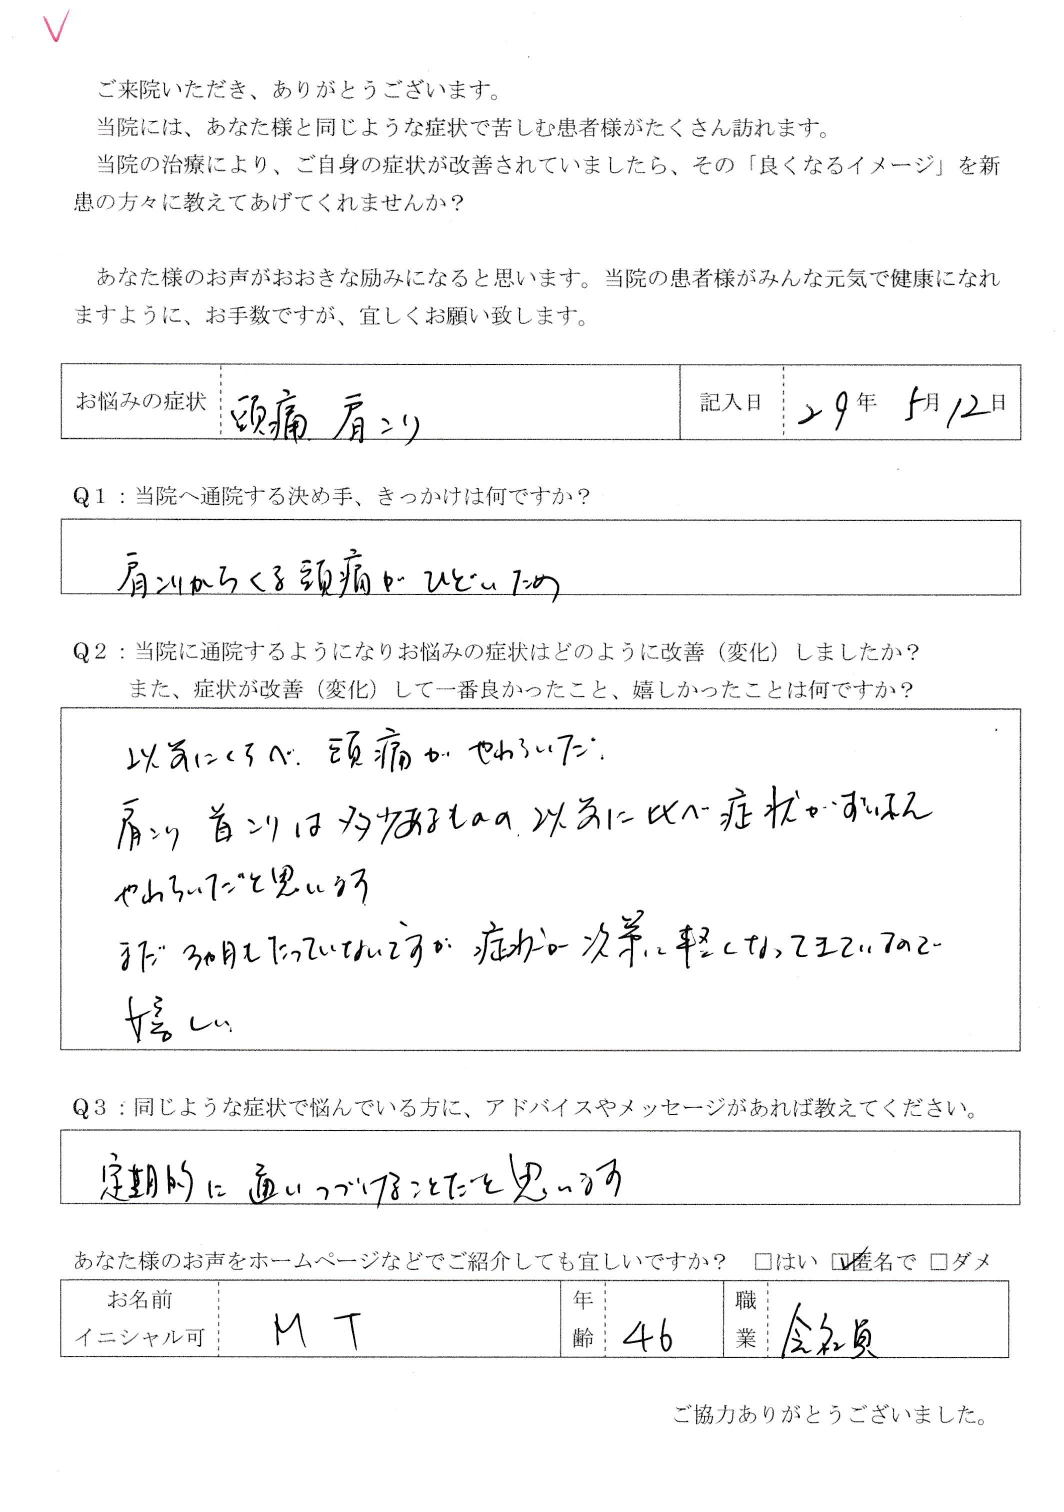 ご来院いただき、ありがとうございます。
当院には、あなた様と同じような症状で苦しむ患者様がたくさん訪れます。
当院の治療により、ご自身の症状が改善されていましたら、その「良くなるイメージ」を新
患の方々に教えてあげてくれませんか？
あなた様のお声がおおきな励みになると思います。当院の患者様がみんな元気で健康になれ
ますように、お手数ですが、宜しくお願い致します。
お悩みの症状 頭痛 肩こり 記入日 29年 5月12日
Q1：当院へ通院する決め手、きっかけは何ですか？
肩こりからくる頭痛が ひどいため
Q2：当院に通院するようになりお悩みの症状はどのように改善（変化）しましたか？
また、症状が改善（変化）して一番良かったこと、嬉しかったことは何ですか？
以前にくらべ、頭痛が やわらいだ。
肩こり 首こりは多少あるものの、以前に比べ症状がずいぶん
やわらいだと思います
まだ3ヶ月もたっていないですが 症状が 次第に軽くなってきているので
嬉しい
Q3：同じような症状で悩んでいる方に、アドバイスやメッセージがあれば教えてください。
定期的に 通いつづけることだと思います
あなた様のお声をホームページなどでご紹介しても宜しいですか？ □はい ☑匿名で □ダメ
お名前 イニシャル可 M T 年齢 46 職業 会社員
ご協力ありがとうございました。